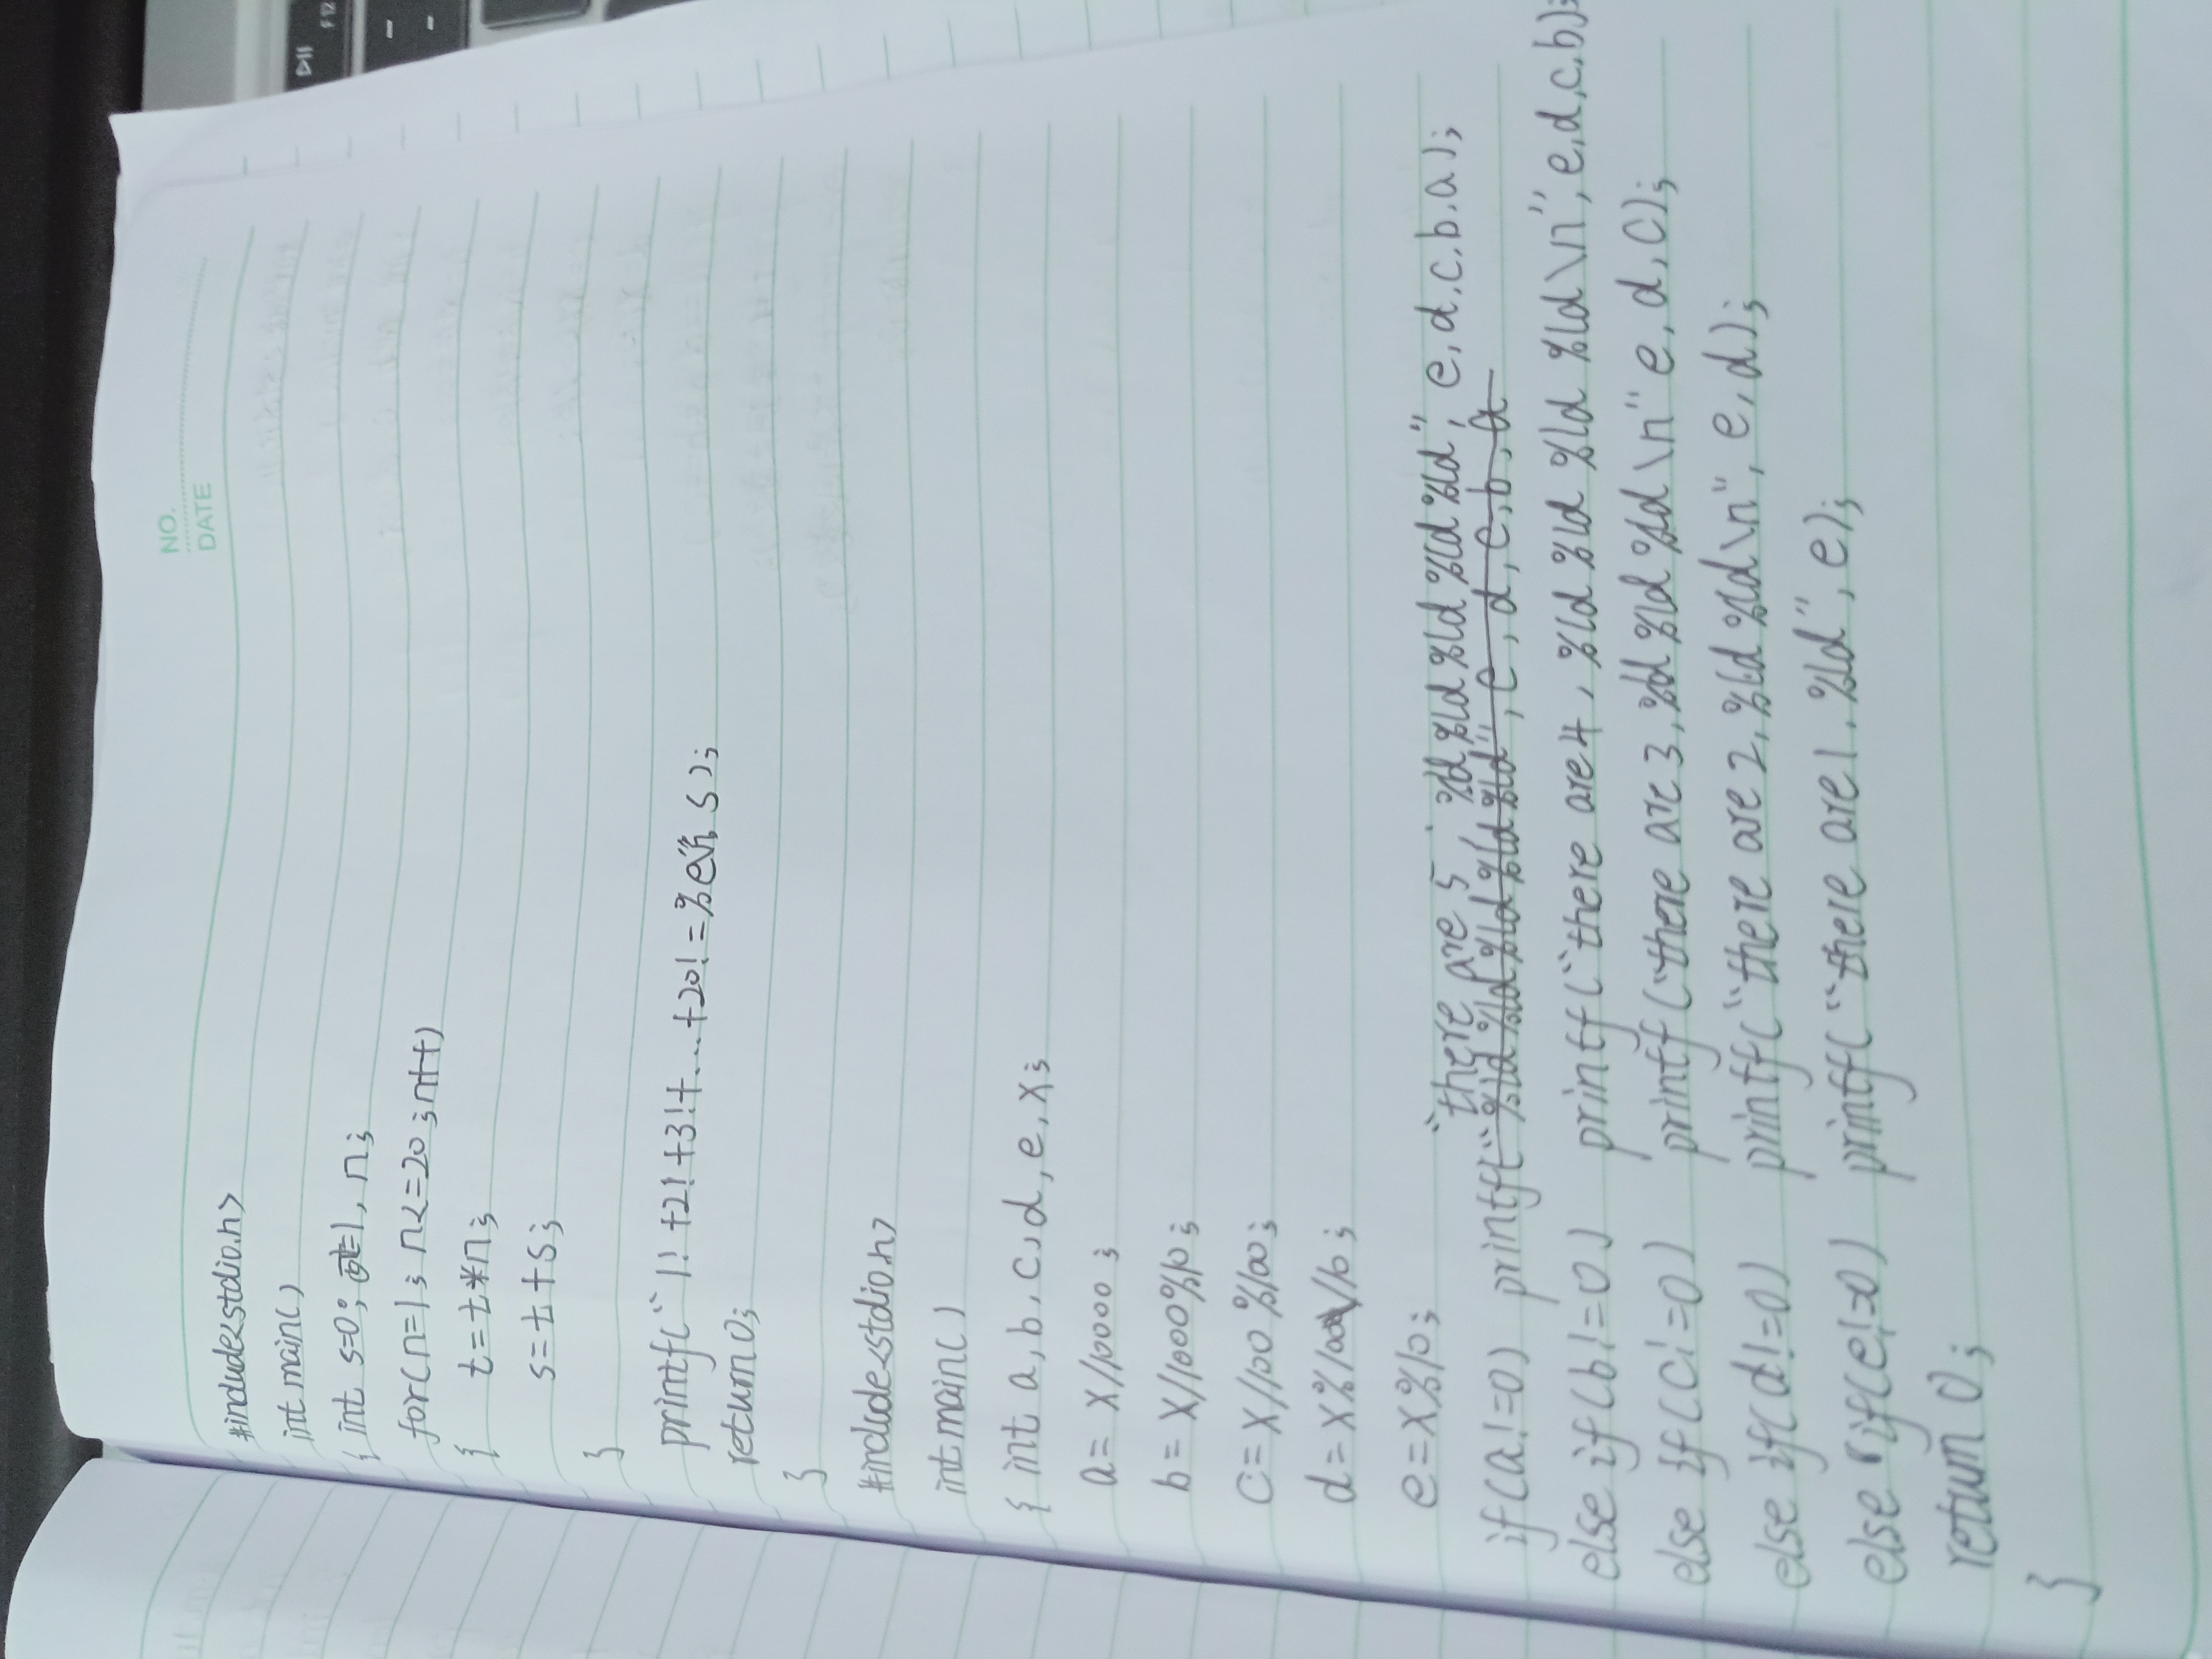 NO.
DATE
#include<stdio.h>
int main()
{ int s=0; t=1, n;
for(n=1; n<=20; n++)
{ t=t*n;
s=t+s;
}
printf("1!+2!+3!+...+20!=%e\n", s);
return 0;
}
#include<stdio.h>
int main()
{ int a,b,c,d,e,x;
a=x/10000;
b=x/1000%10;
c=x/100%100;
d=x%100/10;
e=x%10;
"there are 5, %d %ld %ld %ld %ld", e,d,c,b,a);
if(a!=0) printf("%ld %ld %ld %ld %ld", e, d, c, b, a
else if(b!=0) printf("there are 4, %ld %ld %ld %ld\n", e,d,c,b);
else if(c!=0) printf("there are 3, %ld %ld %ld\n" e, d, c);
else if(d!=0) printf("there are 2, %ld %ld\n", e, d);
else if(e!=0) printf("there are 1. %ld", e);
return 0;
}
▷||
F12